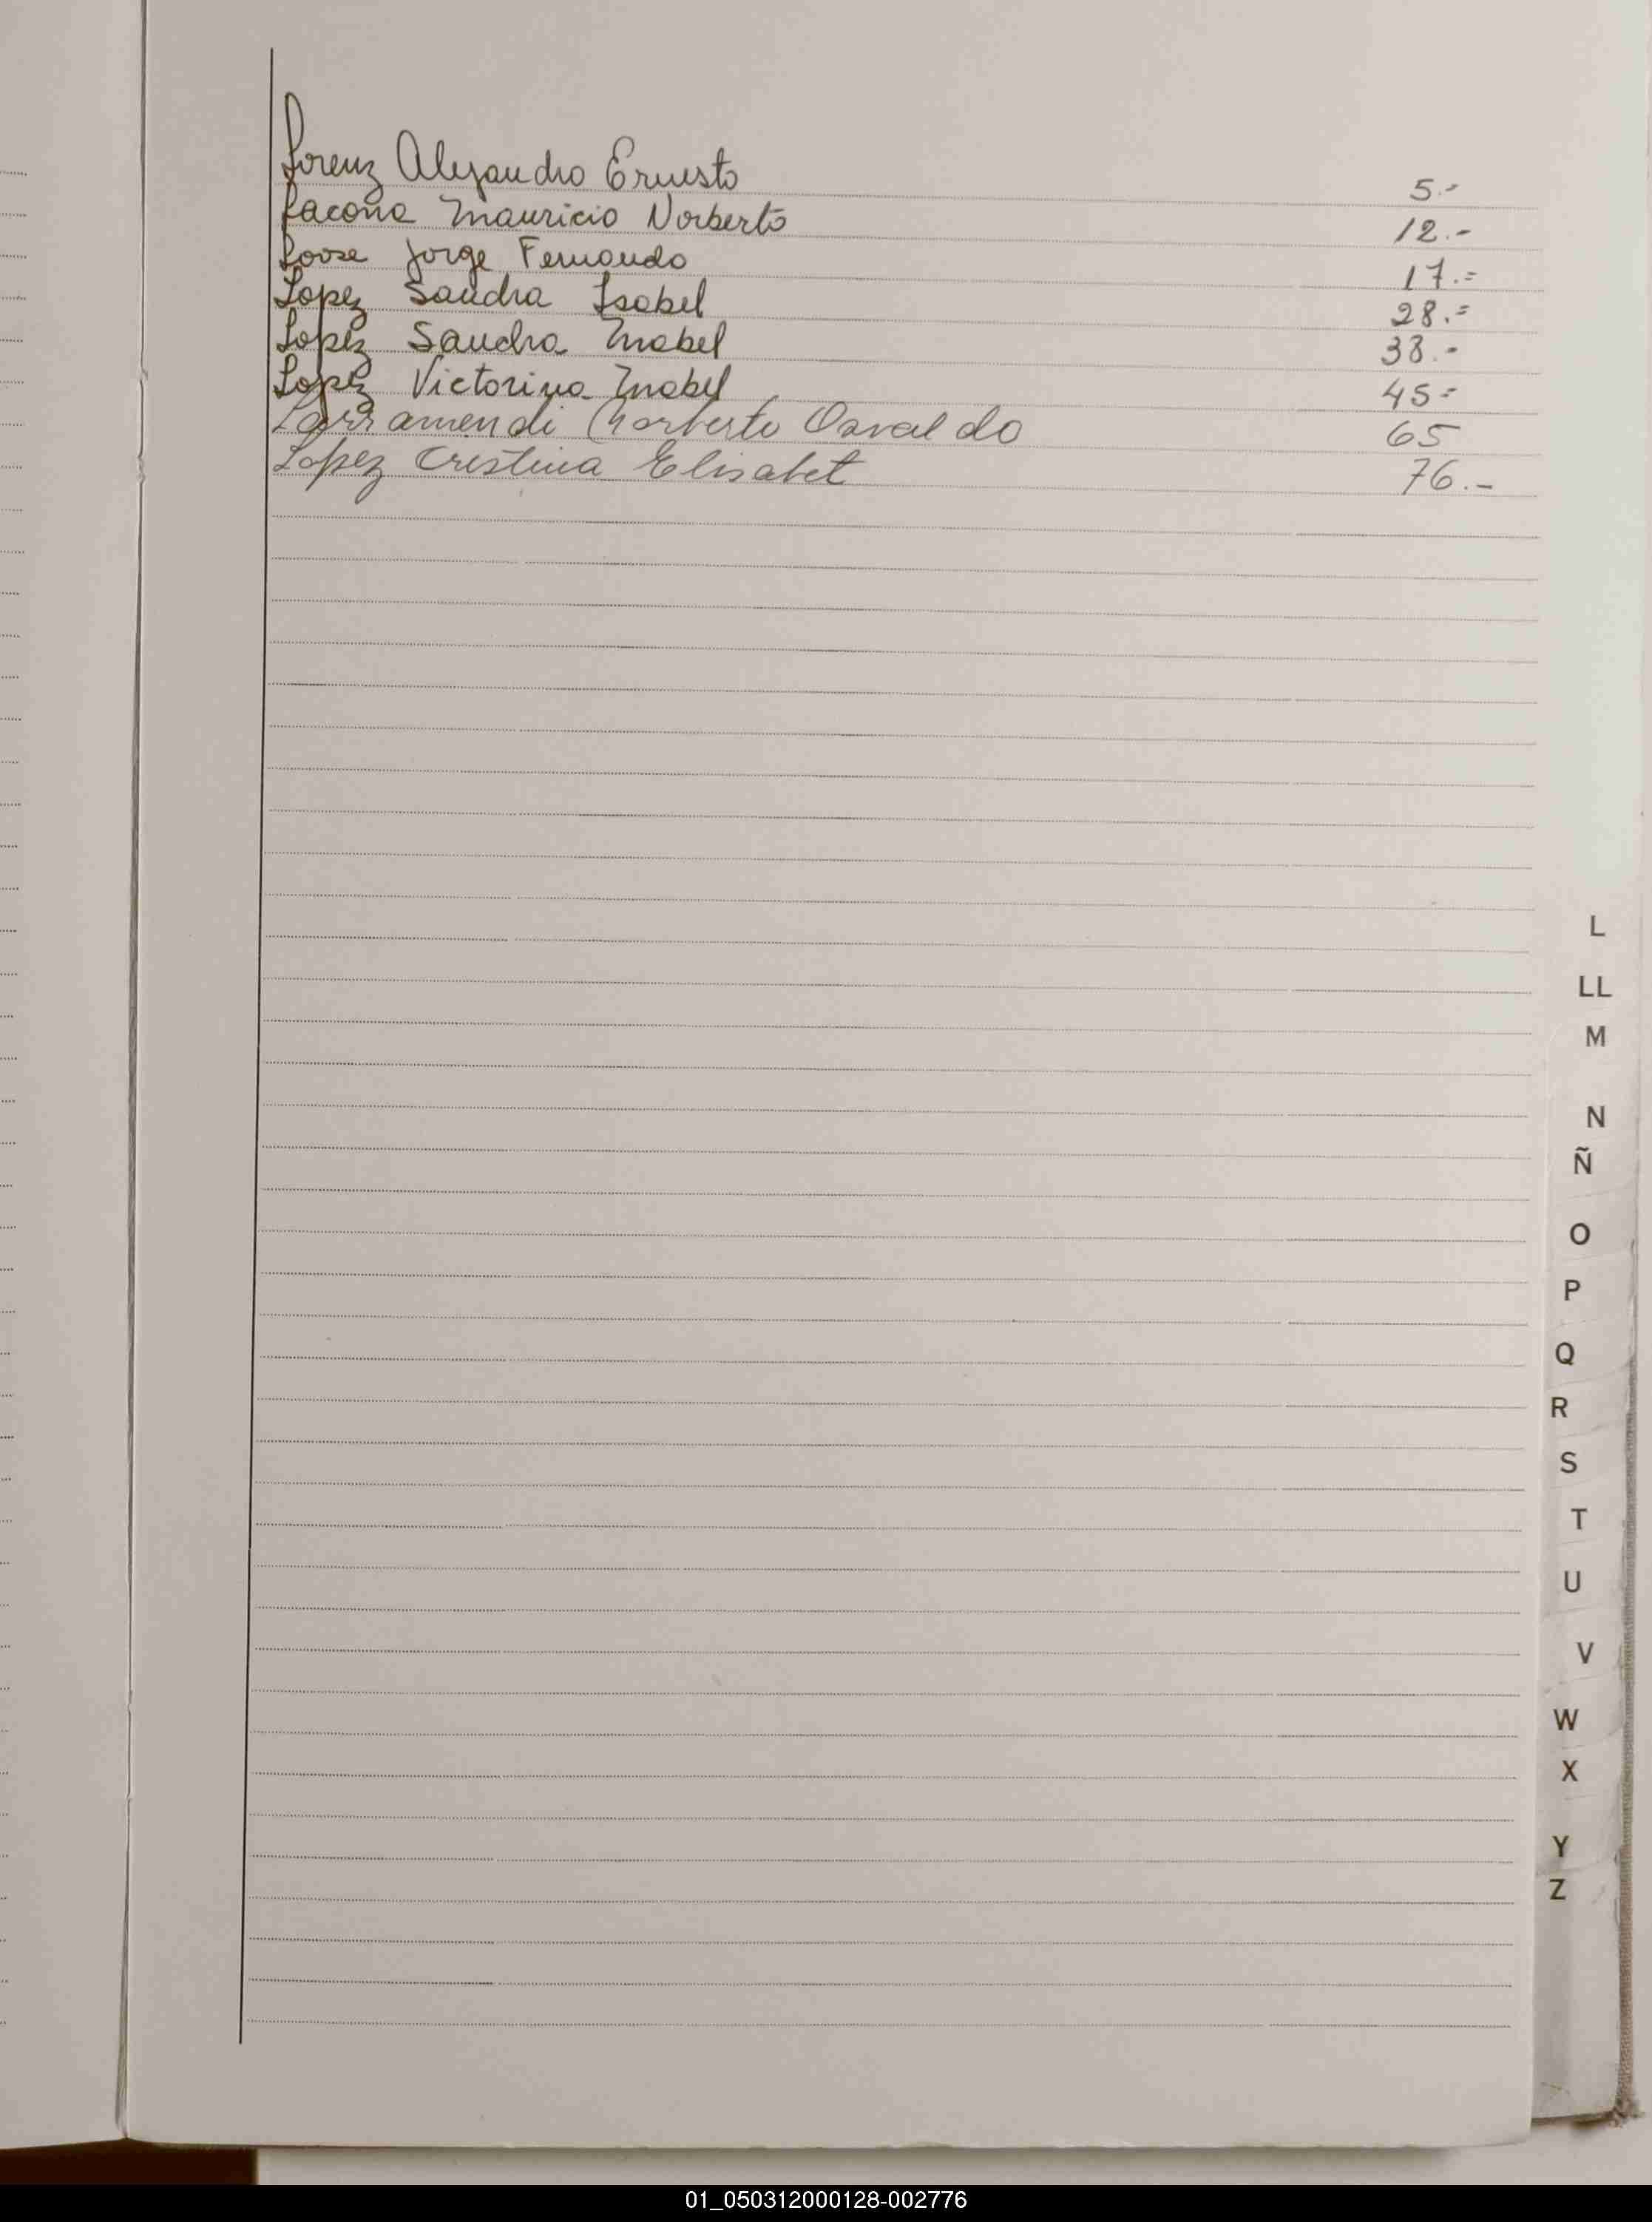 Lorenz Alejandro Ernesto 5.-
Lacona Mauricio Norberto 12.-
Loose Jorge Fernando 17.=
Lopez Sandra Isabel 28.=
Lopez Sandra Mabel 38.-
Lopez Victorina Mabel 45=
Larramendi Norberto Osvaldo 65
Lopez Cristina Elisabet 76.-
L
LL
M
N
Ñ
O
P
Q
R
S
T
U
V
W
X
Y
Z
01_050312000128-002776